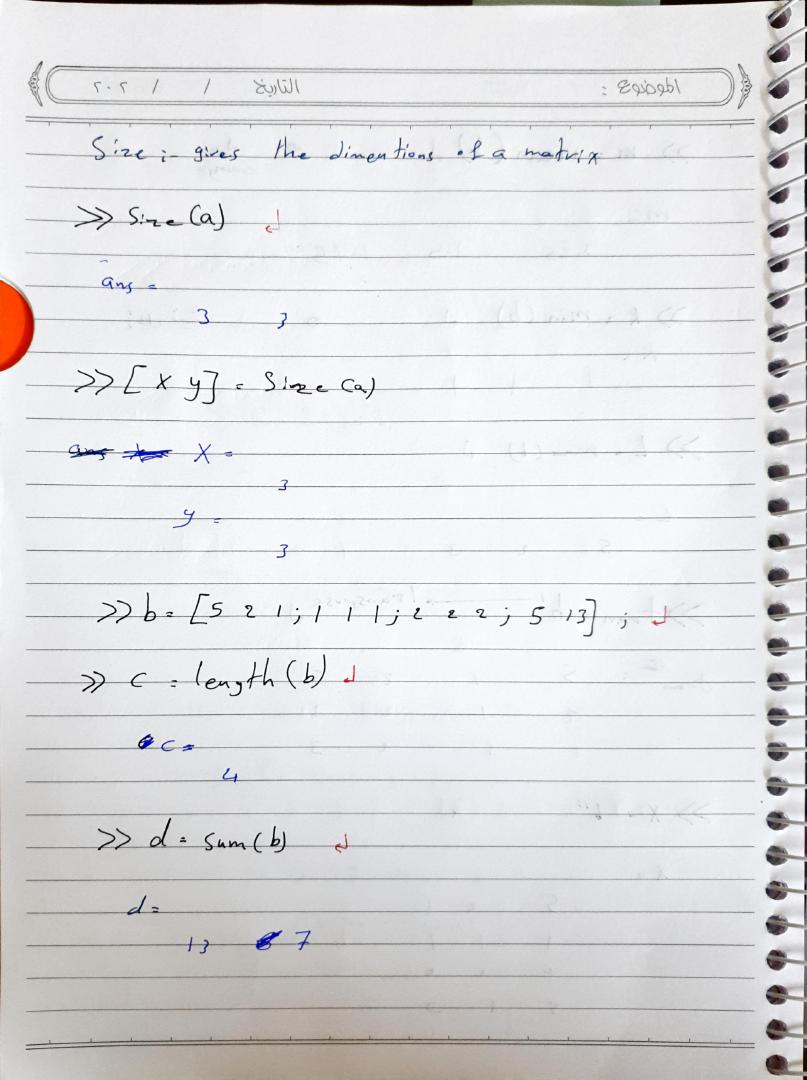 الموضوع : التاريخ / / ٢٠٢
Size :- gives the dimentions of a matrix
>> Size (a) ↲
ans =
3 3
>> [ X y ] = Size (a)
X =
3
y =
3
>> b = [5 2 1 ; 1 1 1 ; 2 2 2 ; 5 13] ; ↲
>> c = length (b) ↲
c =
4
>> d = sum (b) ↲
d =
13 7